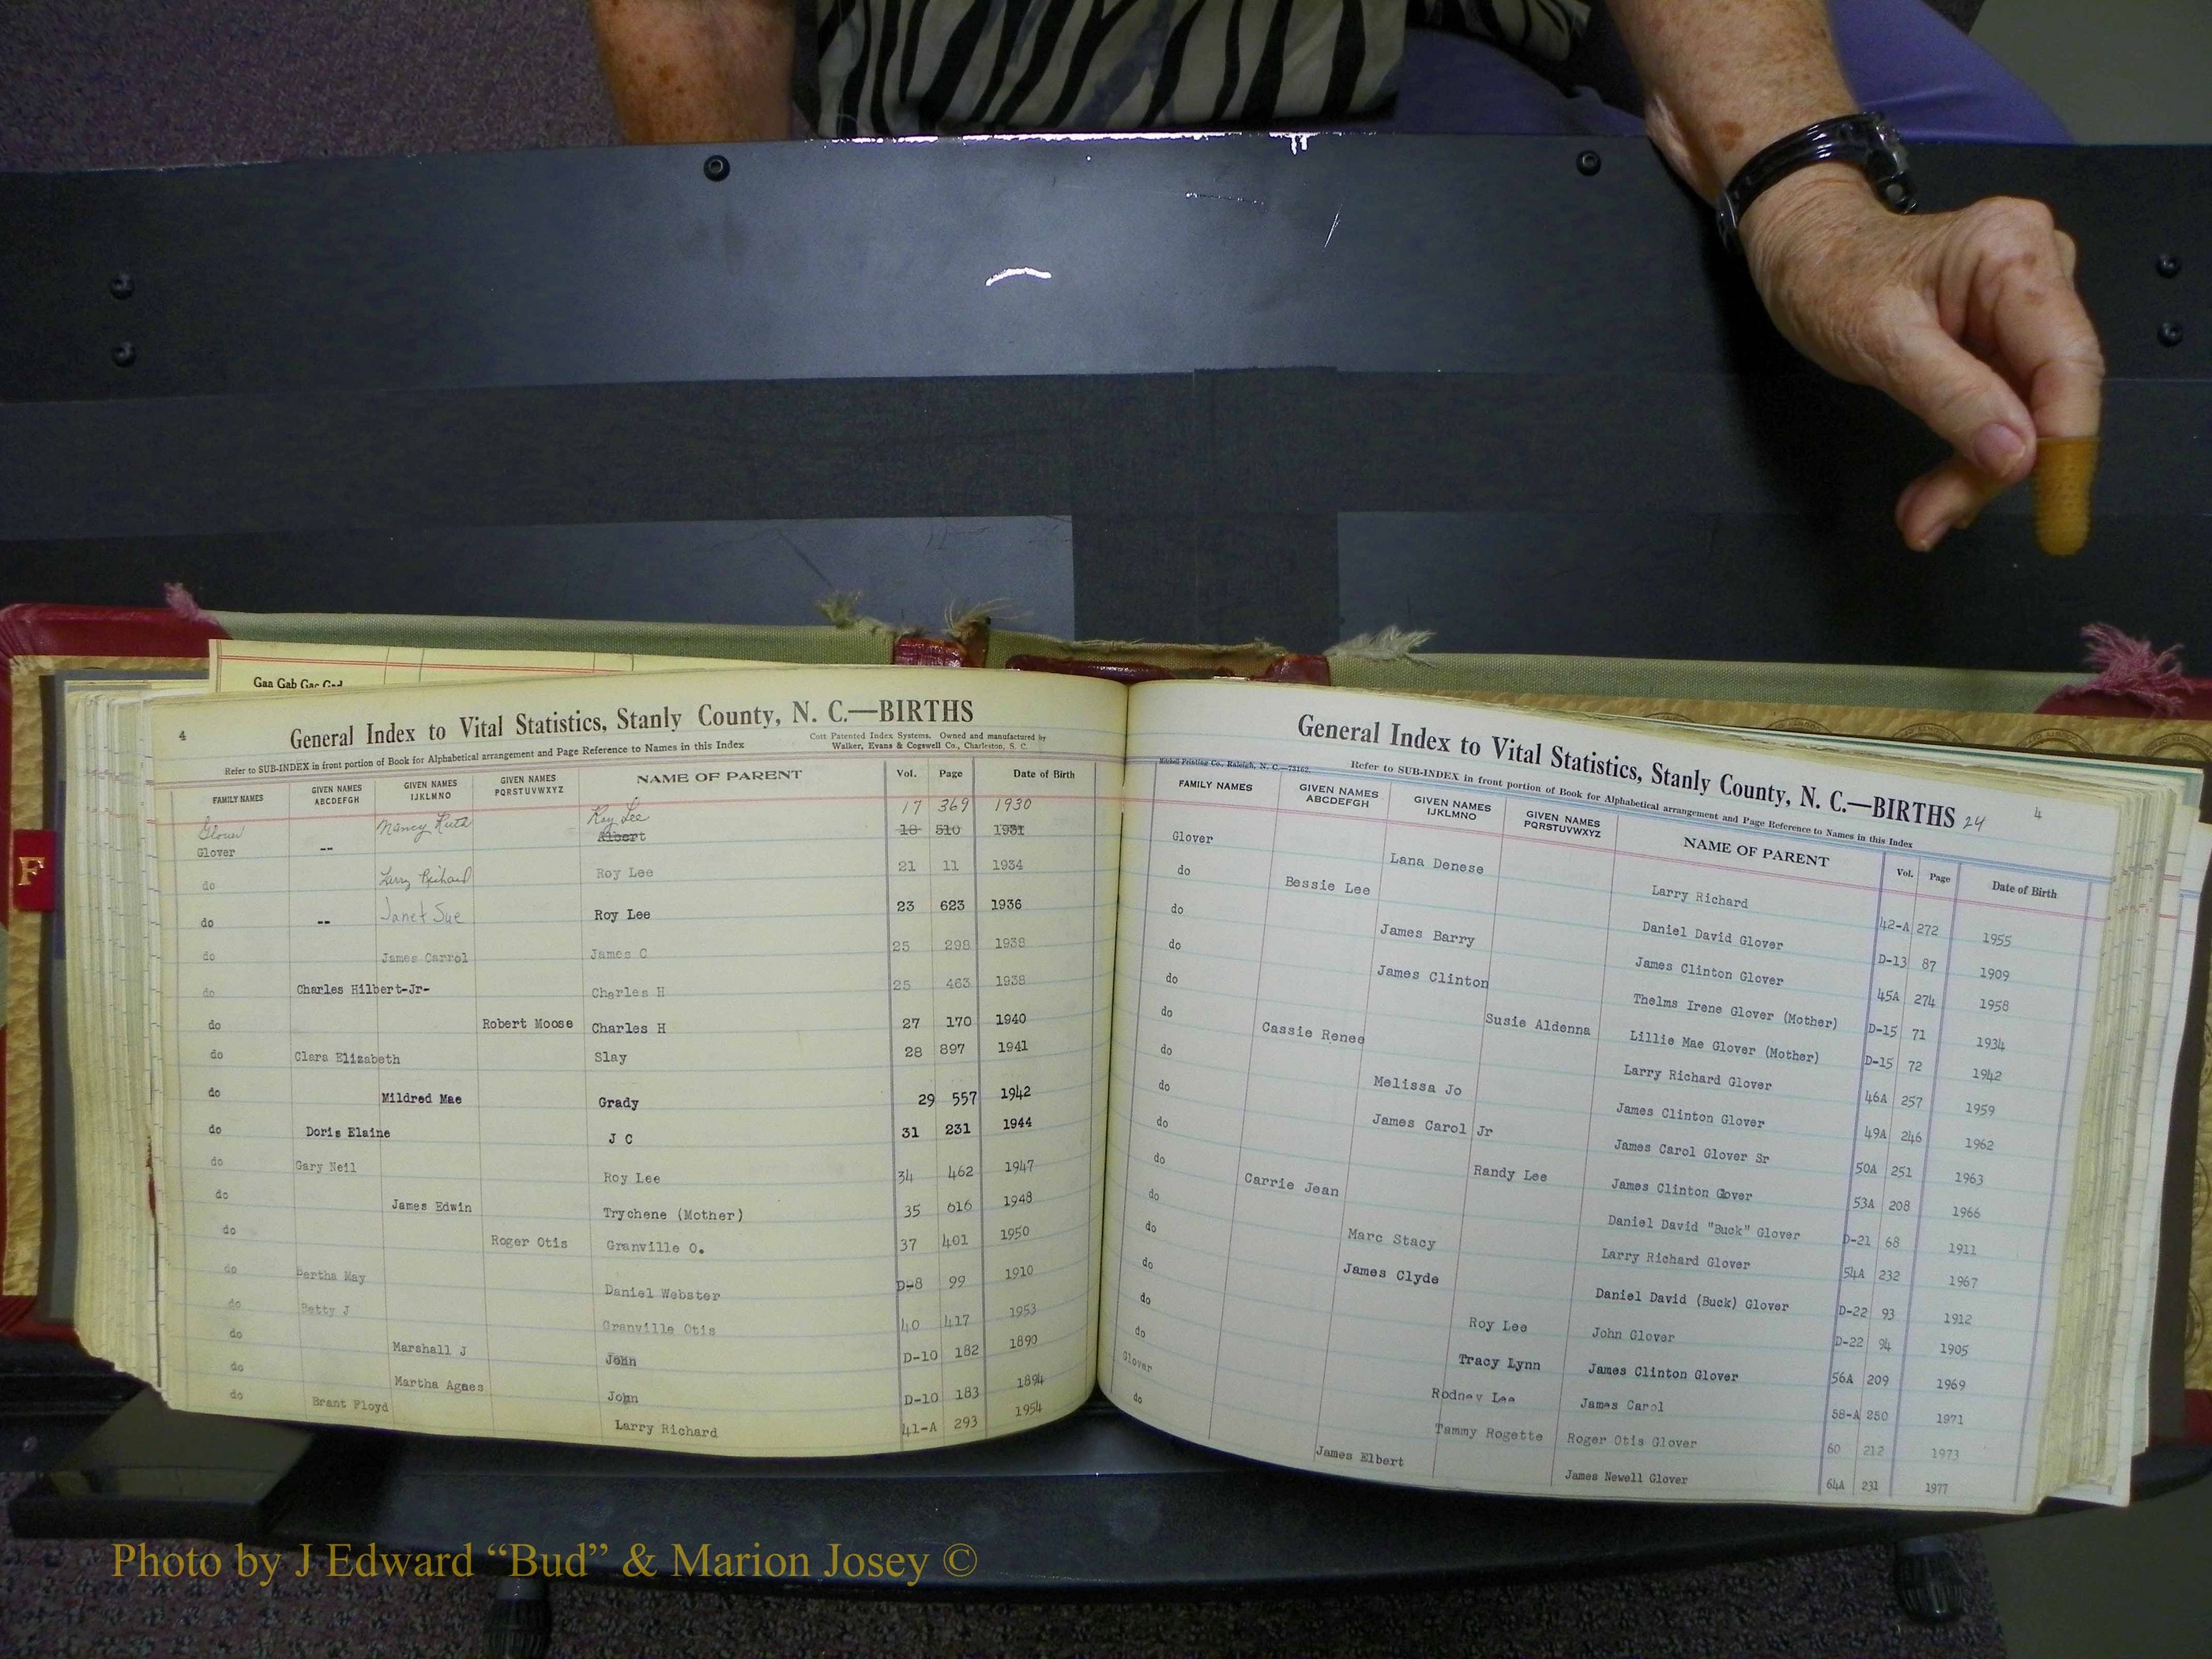 Gaa Gab Gac Gad
F
4
General Index to Vital Statistics, Stanly County, N. C.—BIRTHS
Refer to SUB-INDEX in front portion of Book for Alphabetical arrangement and Page Reference to Names in this Index
Cott Patented Index Systems. Owned and manufactured by
Walker, Evans & Cogswell Co., Charleston, S. C.
FAMILY NAMES GIVEN NAMES ABCDEFGH GIVEN NAMES IJKLMNO GIVEN NAMES PQRSTUVWXYZ NAME OF PARENT Vol. Page Date of Birth
Glover Nancy Ruth Roy Lee 17 369 1930
Glover -- Albert 18 510 1931
do Larry Richard Roy Lee 21 11 1934
do -- Janet Sue Roy Lee 23 623 1936
do James Carrol James C 25 298 1938
do Charles Hilbert-Jr- Charles H 25 463 1938
do Robert Moose Charles H 27 170 1940
do Clara Elizabeth Slay 28 897 1941
do Mildred Mae Grady 29 557 1942
do Doris Elaine J C 31 231 1944
do Gary Neil Roy Lee 34 462 1947
do James Edwin Trychene (Mother) 35 616 1948
do Roger Otis Granville O. 37 401 1950
do Bertha May Daniel Webster D-8 99 1910
do Betty J Granville Otis 40 417 1953
do Marshall J John D-10 182 1890
do Martha Agnes John D-10 183 1894
do Brant Floyd Larry Richard 41-A 293 1954
General Index to Vital Statistics, Stanly County, N. C.—BIRTHS 24
4
Printing Co., Raleigh, N. C.—73162.
Refer to SUB-INDEX in front portion of Book for Alphabetical arrangement and Page Reference to Names in this Index
FAMILY NAMES GIVEN NAMES ABCDEFGH GIVEN NAMES IJKLMNO GIVEN NAMES PQRSTUVWXYZ NAME OF PARENT Vol. Page Date of Birth
Glover Lana Denese Larry Richard 42-A 272 1955
do Bessie Lee Daniel David Glover D-13 87 1909
do James Barry James Clinton Glover 45A 274 1958
do James Clinton Thelms Irene Glover (Mother) D-15 71 1934
do Susie Aldenna Lillie Mae Glover (Mother) D-15 72 1942
do Cassie Renee Larry Richard Glover 46A 257 1959
do Melissa Jo James Clinton Glover 49A 246 1962
do James Carol Jr James Carol Glover Sr 50A 251 1963
do Randy Lee James Clinton Glover 53A 208 1966
do Carrie Jean Daniel David "Buck" Glover D-21 68 1911
do Marc Stacy Larry Richard Glover 54A 232 1967
do James Clyde Daniel David (Buck) Glover D-22 93 1912
do Roy Lee John Glover D-22 94 1905
do Tracy Lynn James Clinton Glover 56A 209 1969
do Rodney Lee James Carol 58-A 250 1971
Glover Tammy Rogette Roger Otis Glover 60 212 1973
do James Elbert James Newell Glover 64A 231 1977
Photo by J Edward “Bud” & Marion Josey ©